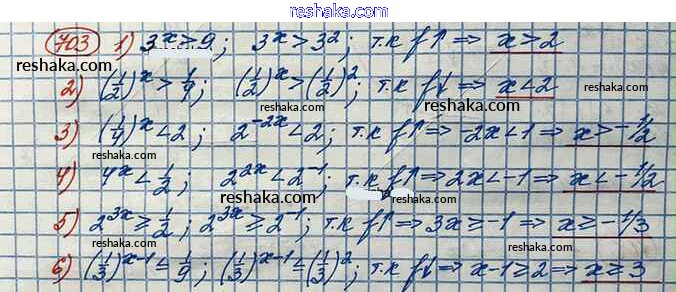 www.reshaka.com
703 1) 3^x > 9; 3^x > 3^2; т.к f↑ ⇒ x > 2
reshaka.com
reshaka.com
2) (1/2)^x > 1/4; (1/2)^x > (1/2)^2; т.к f↓ ⇒ x < 2
reshaka.com
reshaka.com
reshaka.com
3) (1/4)^x < 2; 2^(-2x) < 2; т.к f↑ ⇒ -2x < 1 ⇒ x > -1/2
reshaka.com
reshaka.com
4) 4^x < 1/2; 2^(2x) < 2^(-1); т.к f↑ ⇒ 2x < -1 ⇒ x < -1/2
reshaka.com
reshaka.com
reshaka.com
5) 2^(3x) ≥ 1/2; 2^(3x) ≥ 2^(-1); т.к f↑ ⇒ 3x ≥ -1 ⇒ x ≥ -1/3
reshaka.com
reshaka.com
6) (1/3)^(x-1) ≤ 1/9; (1/3)^(x-1) ≤ (1/3)^2; т.к f↓ ⇒ x-1 ≥ 2 ⇒ x ≥ 3
reshaka.com
reshaka.com
reshaka.com